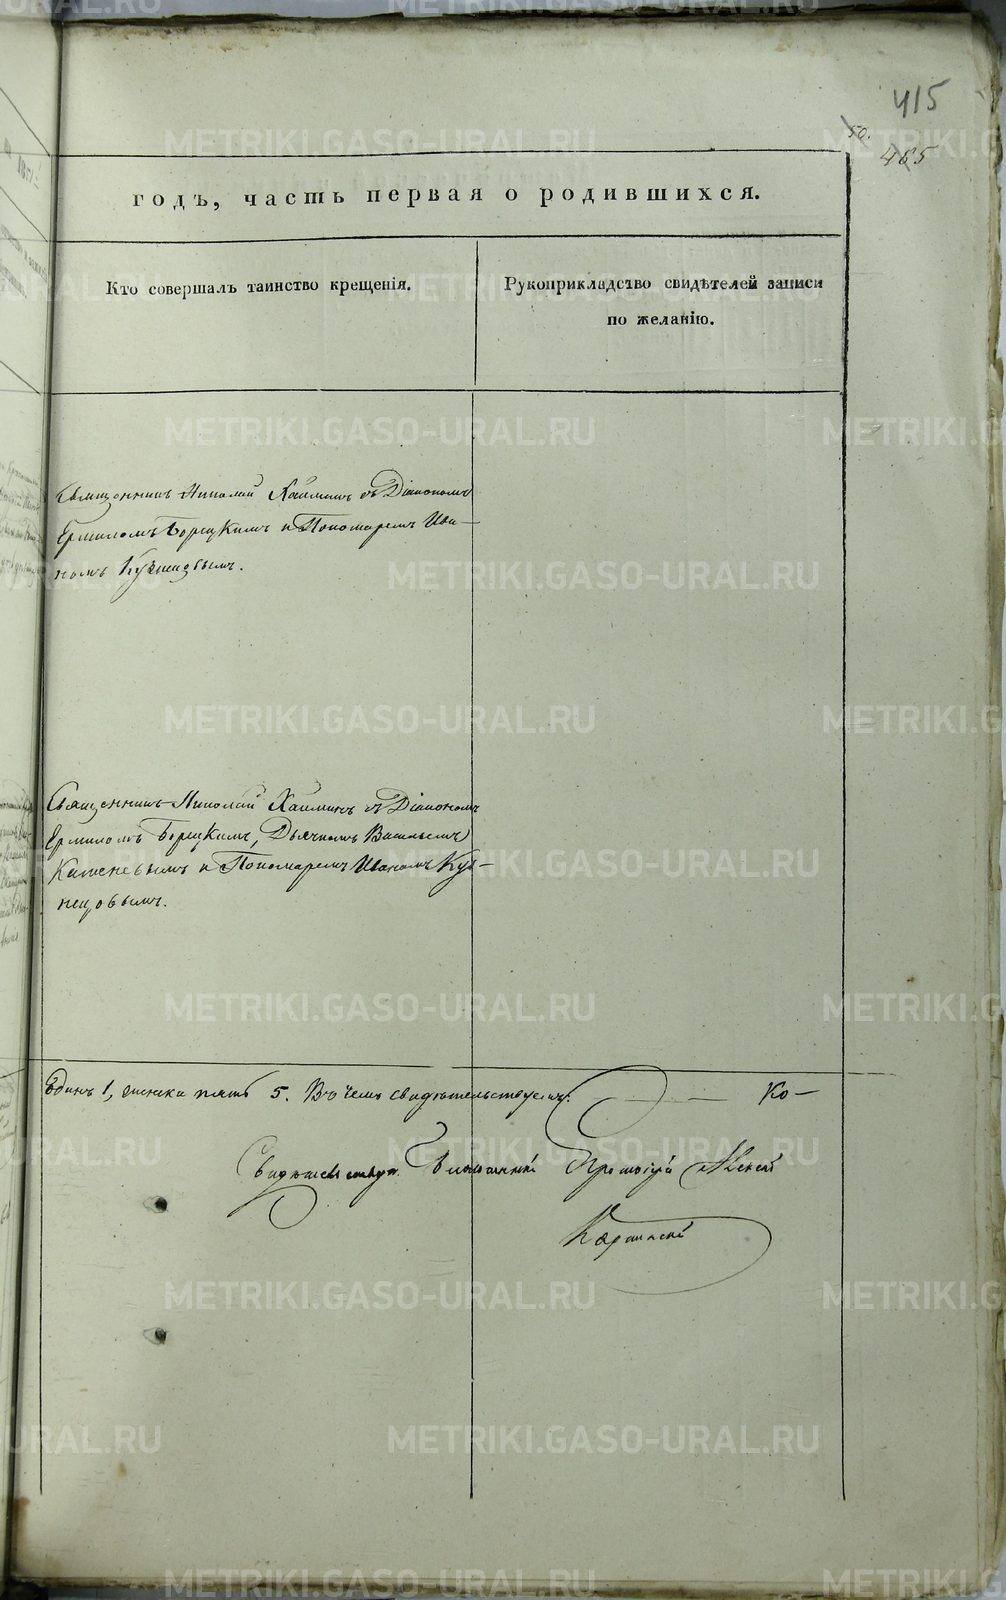 415
50.
465
годъ, часть первая о родившихся.
Кто совершалъ таинство крещенія.
Рукоприкладство свидѣтелей записи
по желанію.
Священникъ Николай Хаминъ съ Діакономъ
Ермиломъ Борецкимъ и Пономаремъ Ива-
номъ Кузнецовымъ.
Священникъ Николай Хаминъ съ Діакономъ
Ермиломъ Борецкимъ, Дьячкомъ Васильемъ
Каменевымъ и Пономаремъ Иваномъ Куз-
нецовымъ.
Единъ 1, женска пять 5. Въ чемъ свидѣтельствуемъ: Ко-
Протоіерей
METRIKI.GASO-URAL.RU